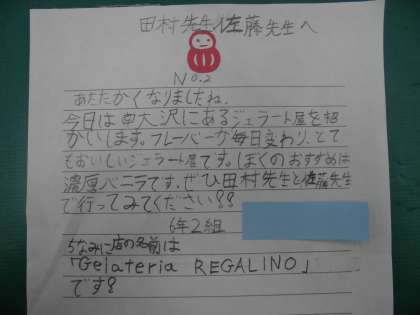 田村先生、佐藤先生へ
No.2
あたたかくなりましたね。
今日は南大沢にあるジェラート屋を紹
かいします。フレーバーが毎日変わり、とて
もおいしいジェラート屋です。ぼくのおすすめは
濃厚バニラです。ぜひ田村先生と佐藤先生
で行ってみてください!!
6年2組
ちなみに店の名前は
「Gelateria REGALINO」
です!